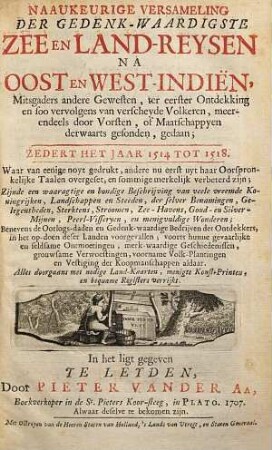 NAAUKEURIGE VERSAMELING
DER GEDENK-WAARDIGSTE
ZEE EN LAND-REYSEN
NA
OOST EN WEST-INDIËN,
Mitsgaders andere Gewesten, ter eerster Ontdekking
en soo vervolgens van verscheyde Volkeren, meer-
endeels door Vorsten, of Maatschappyen
derwaarts gesonden, gedaan;
ZEDERT HET JAAR 1514 TOT 1518.
Waar van eenige noyt gedrukt, andere nu eerst uyt haar Oorspron-
kelijke Taalen overgeset, en sommige merkelijk verbeterd zijn;
Zijnde een waaragtige en bondige Beschrijving van veele vreemde Ko-
ningrijken, Landschappen en Steeden, der selver Benamingen, Ge-
legentheden, Sterktens, Stroomen, Zee-Havens, Goud- en Silver-
Mijnen, Peerl-Visseryen, en menigvuldige Wonderen;
Benevens de Oorlogs-daden en Gedenk-waardige Bedrijven der Ontdekkers,
in het op-doen deser Landen voorgevallen, voorts hunne gevaarlijke
en seldsame Ontmoetingen, merk-waardige Geschiedenissen,
grouwsame Verwoestingen, voorname Volk-Plantingen
en Vestiging der Koopmanschappen aldaar.
Alles doorgaans met nodige Land-Kaarten, menigte Konst-Printen,
en bequame Registers verrijkt.
In het ligt gegeven
TE LEYDEN,
Door PIETER VANDER AA,
Boekverkoper in de St. Pieters Koor-steeg, in PLATO. 1707.
Alwaar deselve te bekomen zijn.
Met Octroyen van de Heeren Staten van Holland, 's Lands van Utregt, en Staten Generaal.